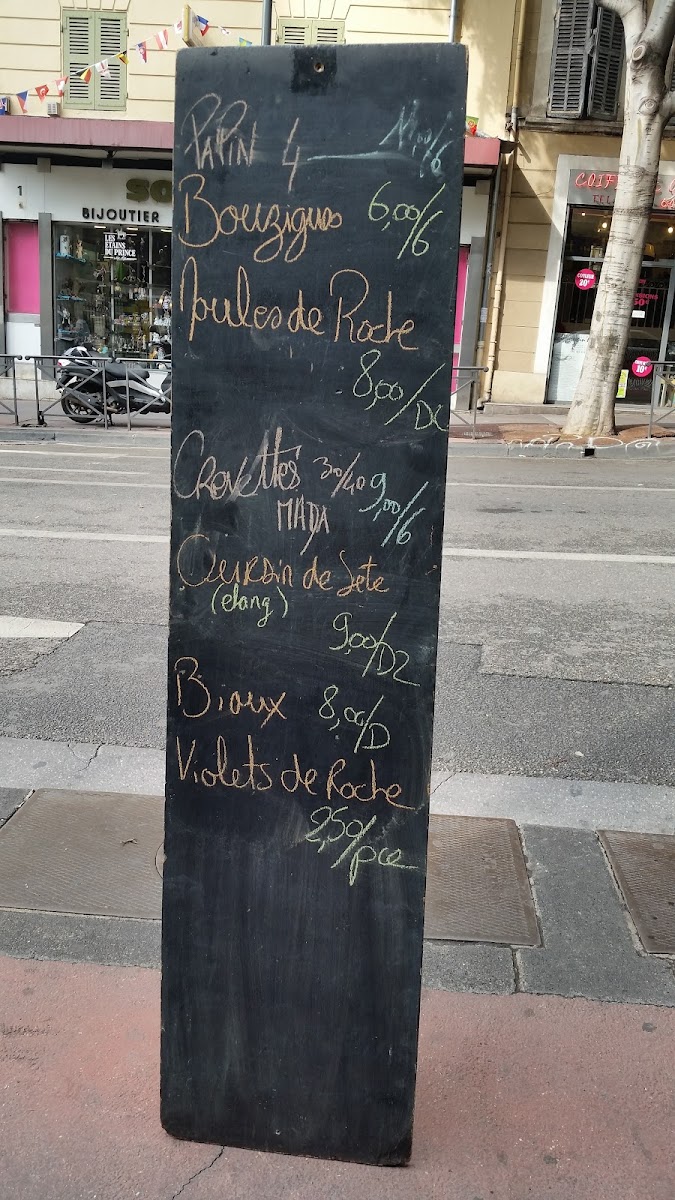 PAPIN 4 — 11,00/6
Bouzigues 6,00/6
Moules de Roche
8,00/DZ
CREVEttES 30/40 9,00/6
MADA
Oursin de Sete
(etang)
9,00/DZ
Bioux 8,00/D
Violets de Roche
2,50/pce
1
SO
BIJOUTIER
LES
ETAINS
DU PRINCE
COIFF
20€
10€